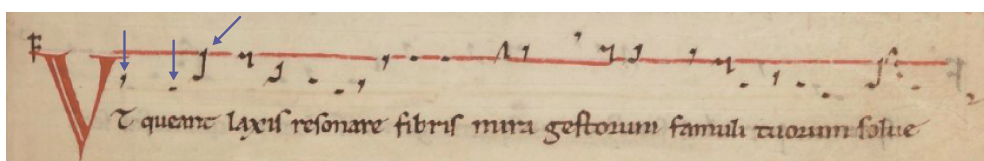 F
UT queant laxis resonare fibris mira gestorum famuli tuorum solue